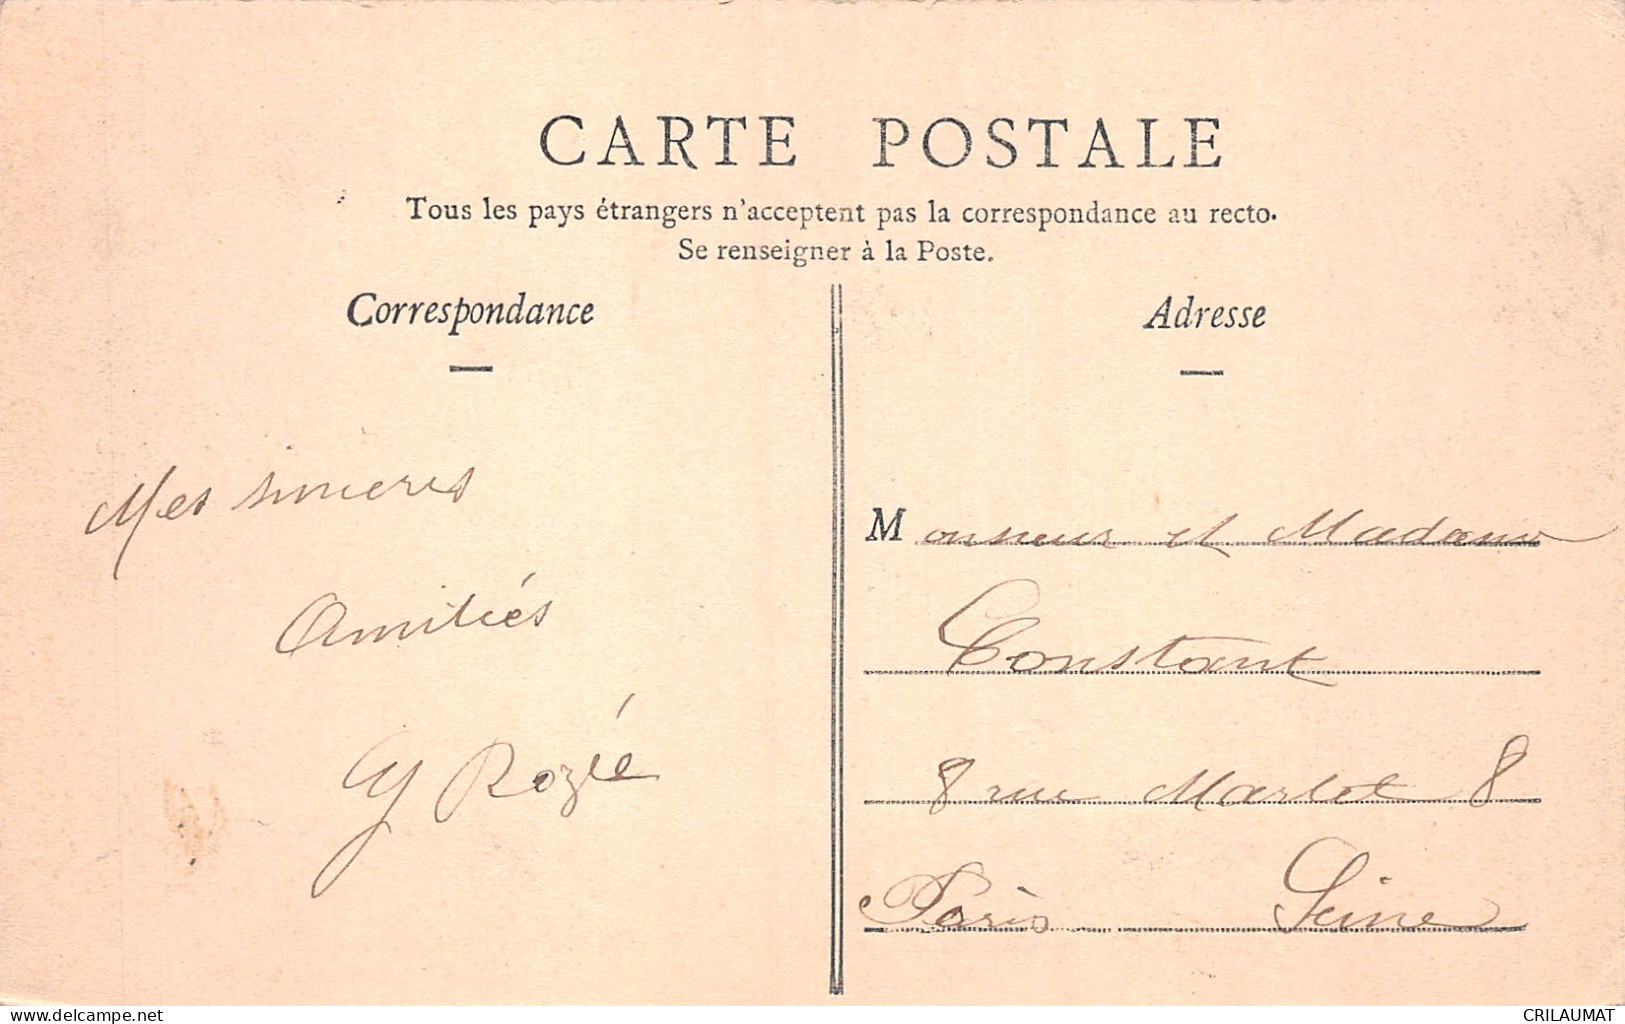 CARTE POSTALE
Tous les pays étrangers n'acceptent pas la correspondance au recto.
Se renseigner à la Poste.
Correspondance
Mes sincères
Amitiés
Rozié
Adresse
Monsieur et Madame
Constant
8 rue Marlot 8
Paris Seine
www.delcampe.net
CRILAUMAT